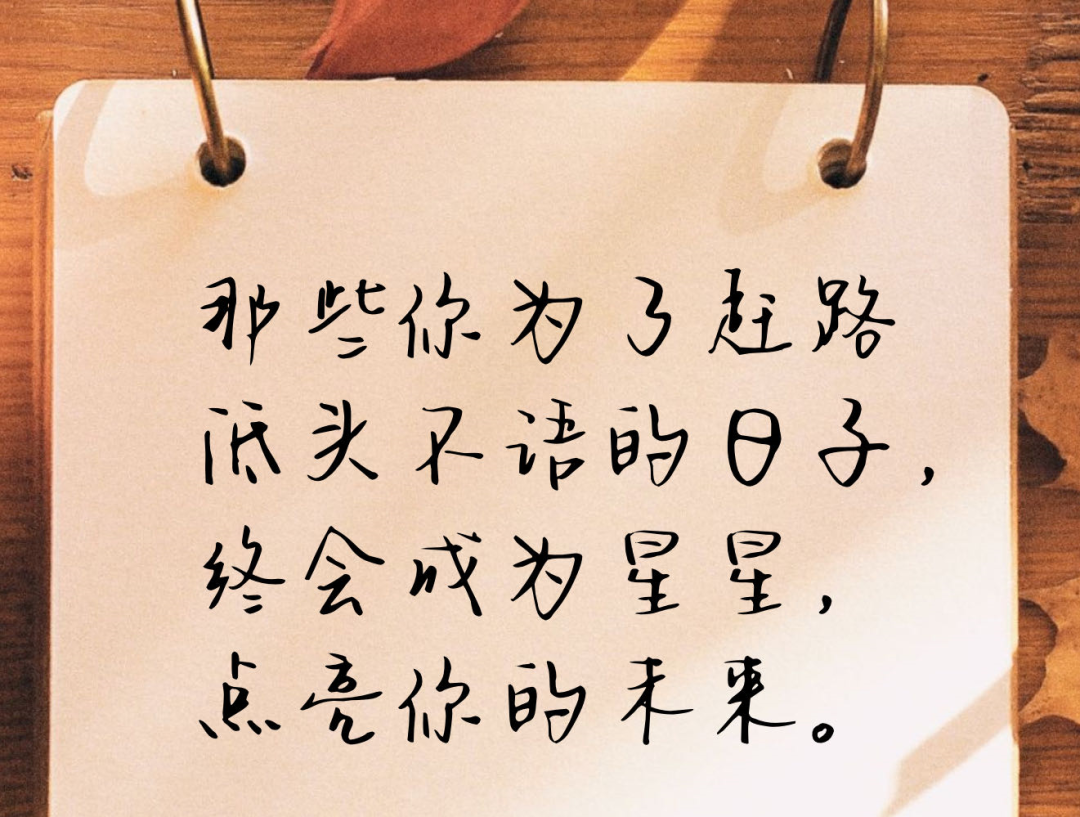 那些你为了赶路
低头不语的日子，
终会成为星星，
点亮你的未来。